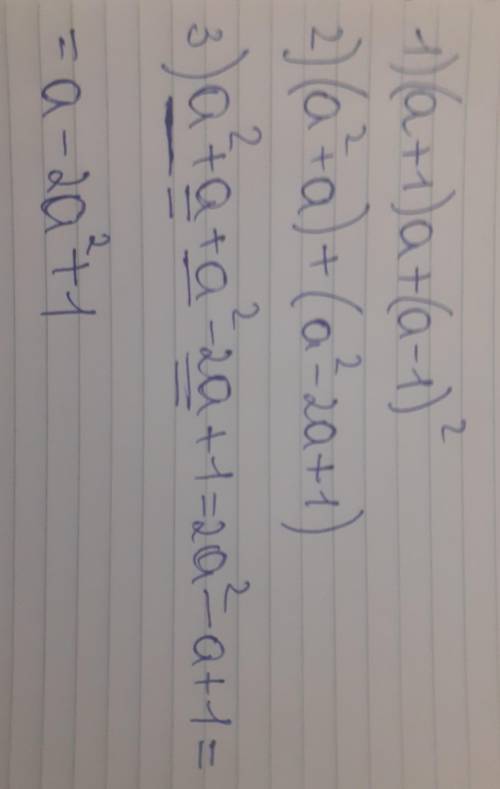 1) (a+1)a+(a-1)²
2) (a²+a)+(a²-2a+1)
3) a²+a+a²-2a+1=2a²-a+1=
=a-2a²+1